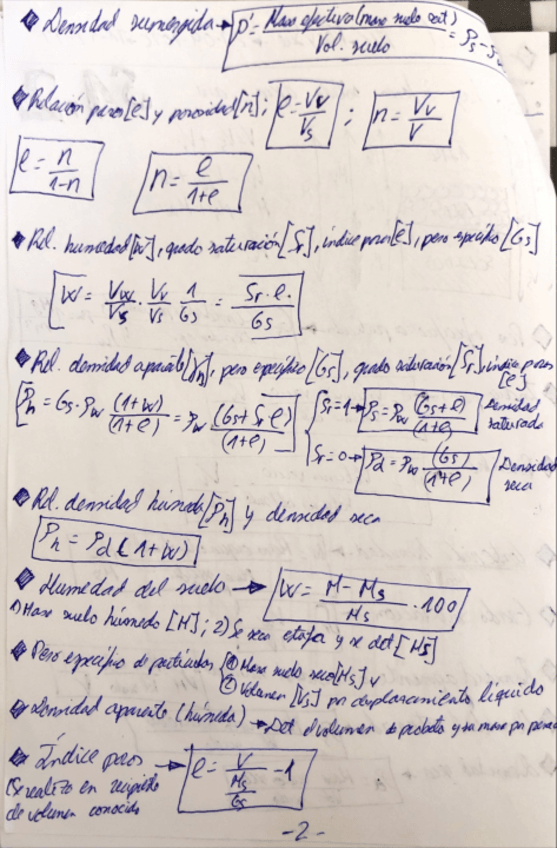 ◆ Densidad sumergida → ρ' = Masa efectiva (masa suelo sat) / Vol. suelo = ρs - ρw
◆ Relación poros [e] y porosidad [n]; e = Vv / Vs ; n = Vv / V
e = n / 1-n    n = e / 1+e
◆ Rel. humedad [w], grado saturación [Sr], índice poros [e], peso específico [Gs]
W = Vw / Vs · Vv / Vs · 1 / Gs = Sr · e / Gs
◆ Rel. densidad aparente [ρh], peso específico [Gs], grado saturación [Sr], índice poros [e]
ρh = Gs · ρw (1+w) / (1+e) = ρw (Gs + Sr·e) / (1+e)
Sr=1 → ρs = ρw (Gs + e) / (1+e) Densidad saturada
Sr=0 → ρd = ρw (Gs) / (1+e) Densidad seca
◆ Rel. densidad húmeda [ρh] y densidad seca
ρh = ρd (1+w)
◆ Humedad del suelo → W = M - Ms / Ms · 100
1) Masa suelo húmedo [M]; 2) Se seca y se det [Ms]
◆ Peso específico de partículas, ① Masa suelo seco [Ms] y
② Volumen [Vs] por desplazamiento líquido
◆ Densidad aparente (húmeda) → Det el volumen de probeta y su masa
◆ Índice poros → e = V / (Ms / Gs) - 1
(Se realiza en recipiente
de volumen conocido
-2-